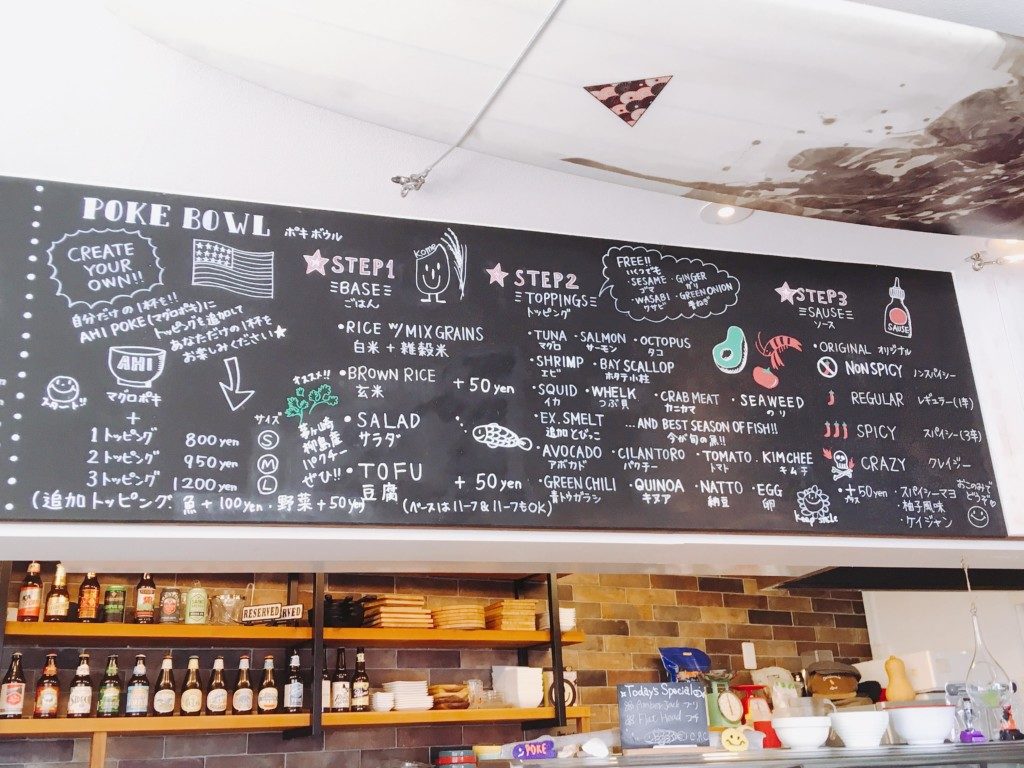 POKE BOWL ポキ ボウル
CREATE
YOUR
OWN!!
自分だけの1杯を!!
AHI POKE(マグロポキ)に
トッピングを追加して
あなただけの1杯を
お楽しみください!★
AHI
スタート!!
マグロポキ
+
サイズ
1トッピング 800yen S
2トッピング 950yen M
3トッピング 1200yen L
(追加トッピング 魚+100yen・野菜+50yen)
オススメ!!
茅ヶ崎
柳島産
パクチー
ぜひ!!
★STEP1
BASE
ごはん
Kome
・RICE W/MIX GRAINS
白米 + 雑穀米
・BROWN RICE +50yen
玄米
・SALAD
サラダ
・TOFU +50yen
豆腐
(ベースはハーフ&ハーフもOK)
★STEP2
TOPPINGS
トッピング
FREE!!
いくつでも
・SESAME ・GINGER
ゴマ ガリ
・WASABI ・GREEN ONION
ワサビ 青ねぎ
・TUNA ・SALMON ・OCTOPUS
マグロ サーモン タコ
・SHRIMP ・BAY SCALLOP
エビ ホタテ小柱
・SQUID ・WHELK ・CRAB MEAT ・SEAWEED
イカ つぶ貝 カニカマ のり
・EX. SMELT ...AND BEST SEASON OF FISH!!
追加とびっこ 今が旬の魚!!
・AVOCADO ・CILANTORO ・TOMATO ・KIMCHEE
アボカド パクチー トマト キムチ
・GREEN CHILI ・QUINOA ・NATTO ・EGG
青トウガラシ キヌア 納豆 卵
★STEP3
SAUSE
ソース
SAUSE
・ORIGINAL オリジナル
NON SPICY ノンスパイシー
REGULAR レギュラー(1辛)
SPICY スパイシー(3辛)
CRAZY クレイジー
+50yen
プラス
・スパイシーマヨ
・柚子風味
・ケイジャン
おこのみで
どうぞ♡
RESERVED
Today's Special
Amber Jack ブリ
Flat Head コチ
POKE